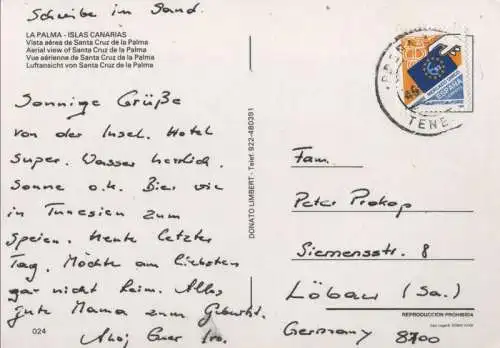 Schreibe im Sand.
LA PALMA - ISLAS CANARIAS
Vista aérea de Santa Cruz de la Palma
Aerial view of Santa Cruz de la Palma
Vue aérienne de Santa Cruz de la Palma
Luftansicht von Santa Cruz de la Palma
Sonnige Grüße
von der Insel. Hotel
super. Wasser herrlich.
Sonne o.k. Bier wie
in Tunesien zum
Speien. Heute letzter
Tag. Möchte am liebsten
gar nicht heim. Alles
gute Mama zum Geburtst.
Ahoj Euer
024
DONATO LIMBERT - Telef. 922-480391
ESPAÑA
TENE
Fam.
Peter Prokop
Siemensstr. 8
Löbau (Sa.)
REPRODUCCION PROHIBIDA
Germany 8700